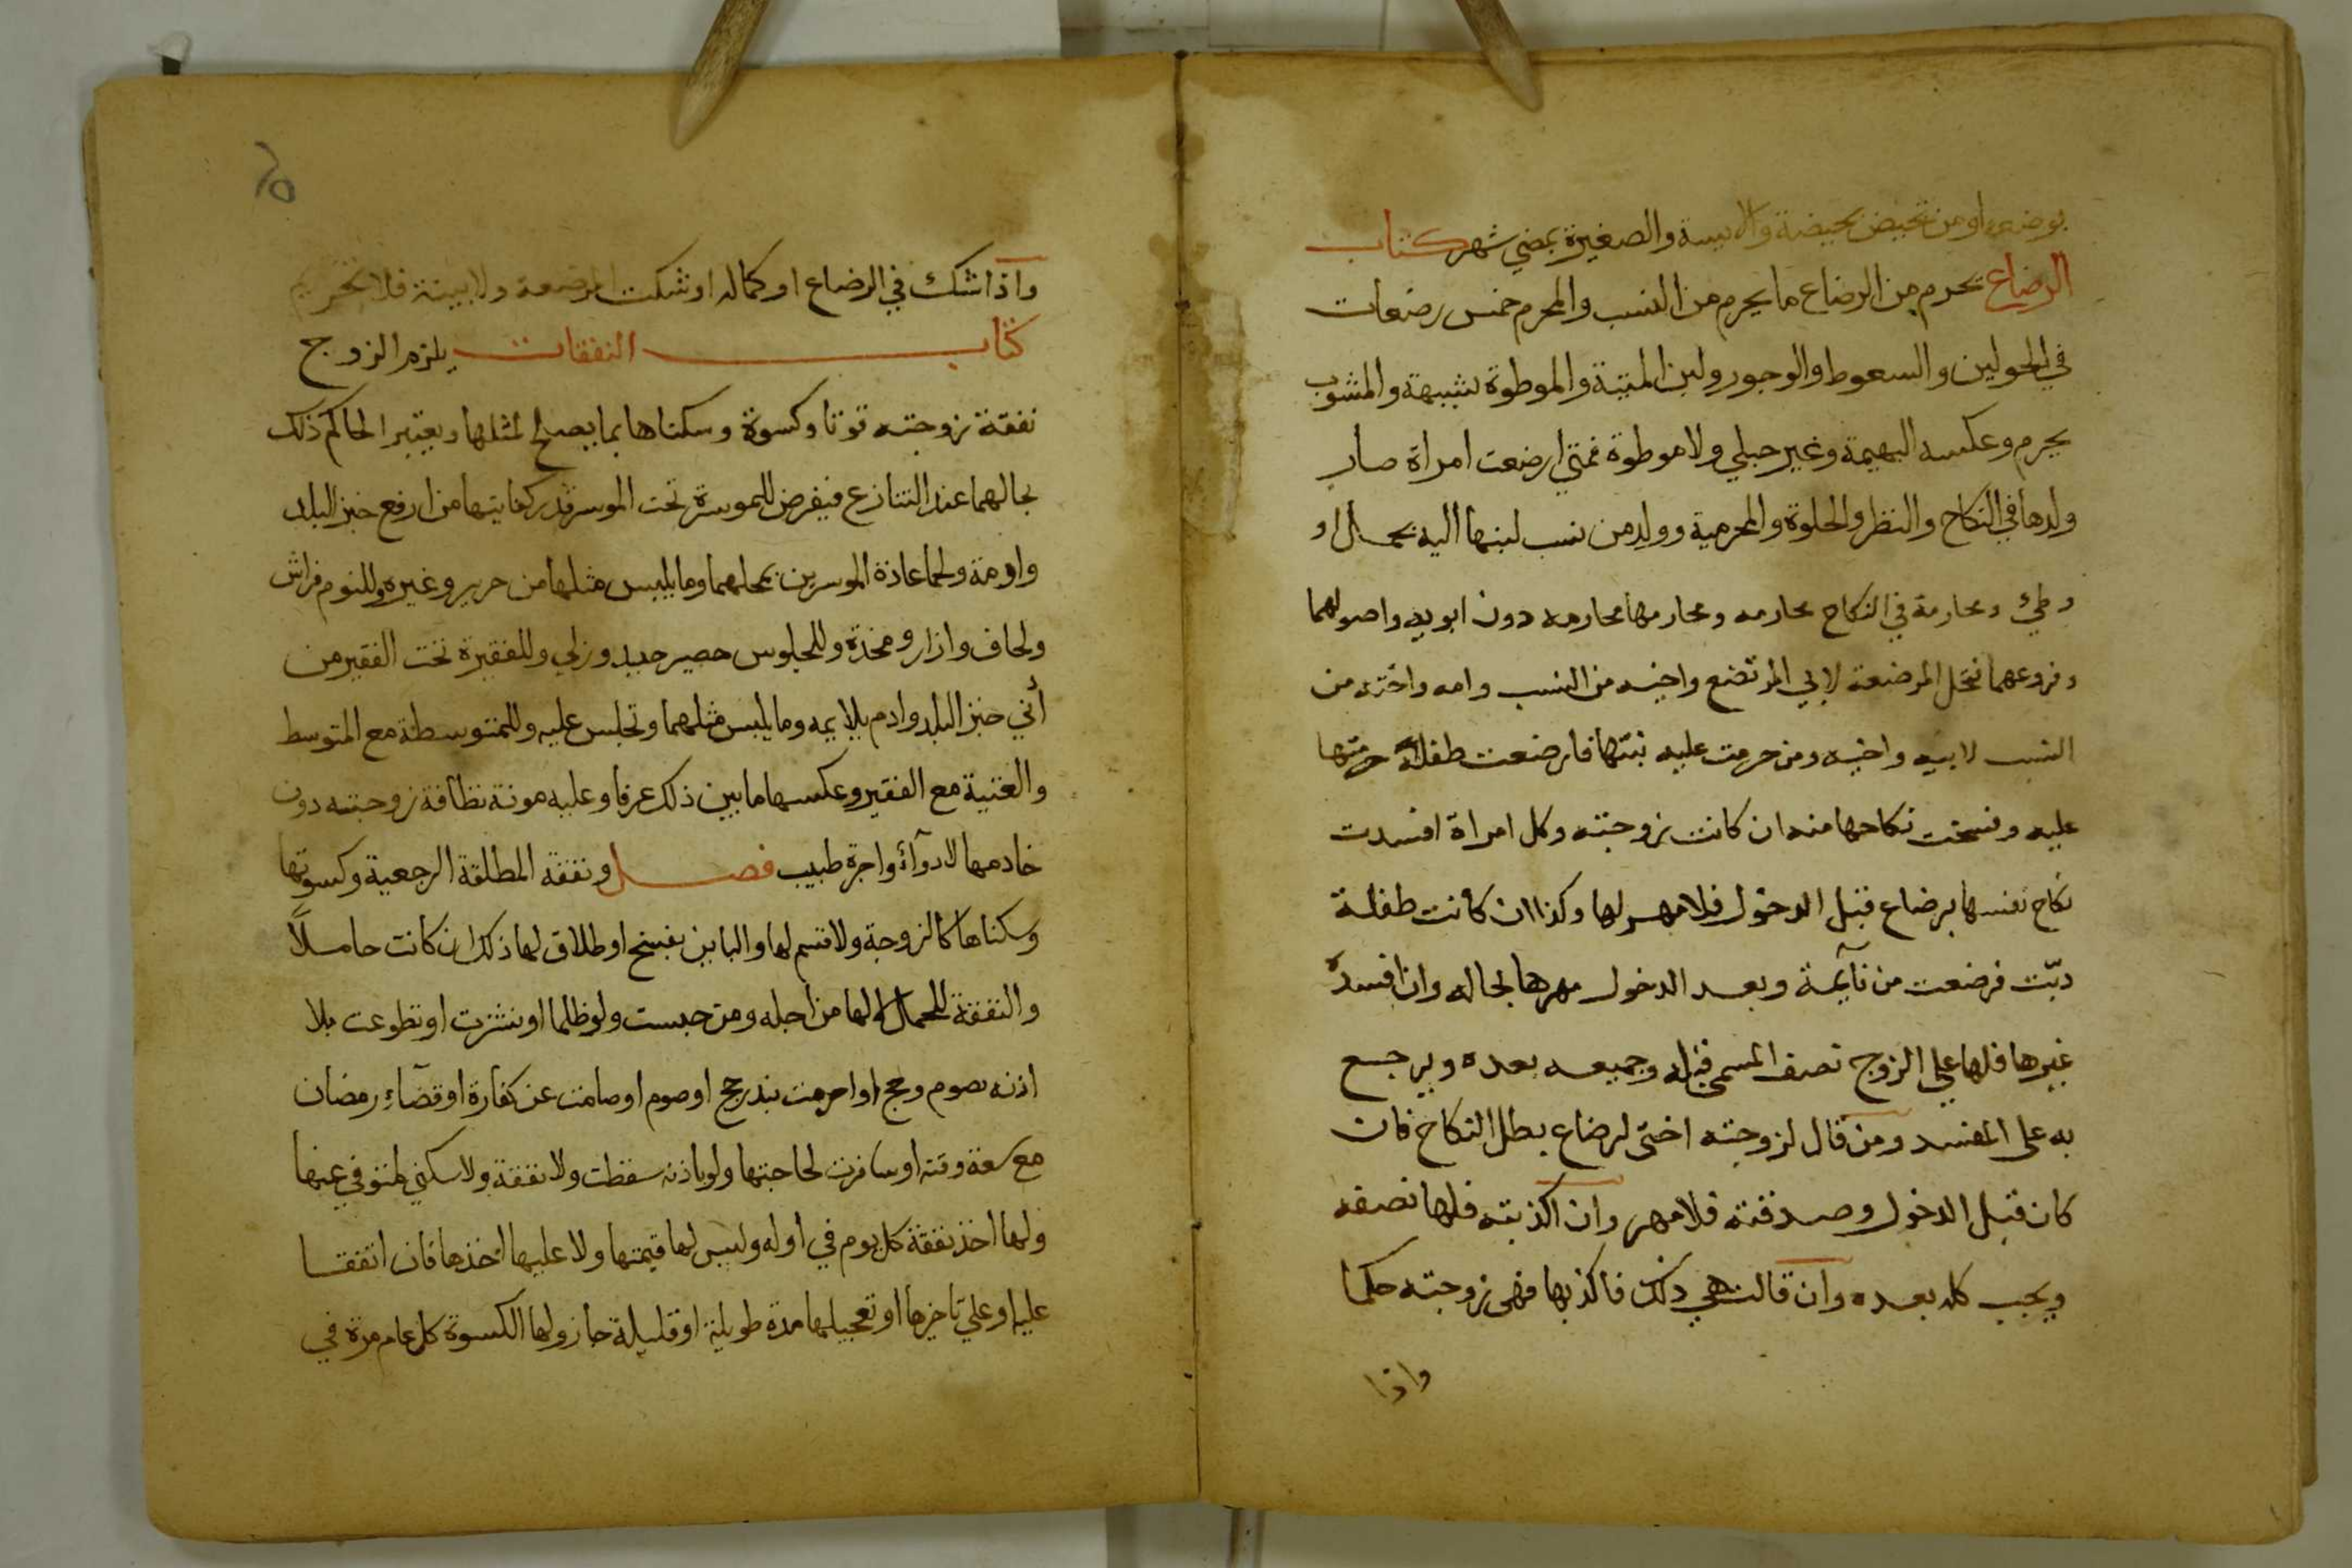 بوضعه او من تحيض بحيضة والايسة والصغيرة بمضي شهر كتاب
الرضاع يحرم من الرضاع ما يحرم من النسب والمحرم خمس رضعات
في الحولين والسعوط والوجور ولبن الميتة والموطوة بشبهة والمشوب
يحرم وعكسه البهيمة وغير حبلي ولا موطوة فمتي ارضعت امراة صار
ولدها في النكاح والنظر والخلوة والمحرمية وولد من نسب لبنها اليه بحمل او
وطئ ومحارمة في النكاح محارمه ومحارمها محارمه دون ابويه واصولهما
وفروعهما فتحل المرضعة لابي المرتضع واخيه من النسب وامه واخته من
النسب لابيه واخيه ومن حرمت عليه بنتها فارضعت طفلة حرمتها
عليه وفسخت نكاحها منه ان كانت زوجته وكل امراة افسدت
نكاح نفسها برضاع قبل الدخول فلا مهر لها وكذا ان كانت طفلة
دبّت فرضعت من نآيمة وبعد الدخول مهرها بحاله وان افسده
غيرها فلها علي الزوج نصف المسمي قبله وجميعه بعده ويرجع
به على المفسد ومن قال لزوجته اختي لرضاع بطل النكاح فان
كان قبل الدخول وصدقته فلا مهر وان اكذبته فلها نصفه
ويجب كله بعده وان قالت هي ذلك فاكذبها فهي زوجته حكما
واذا
٦٥
واذا شك في الرضاع او كماله او شكت المرضعة ولا بينة فلا تحريم
كتاب النفقات يلزم الزوج
نفقة زوجته قوتا وكسوة وسكناها بما يصلح لمثلها ويعتبر الحاكم ذلك
بحالهما عند التنازع فيفرض للموسرة تحت الموسر قدر كفايتها من ارفع خبز البلد
وادمة ولحما عادة الموسرين بمحلهما وما يلبس مثلها من حرير وغيره وللنوم فراش
ولحاف وازار ومخدة وللجلوس حصير جيد وزلي وللفقيرة تحت الفقير من
أدني خبز البلد وادم يلايمه وما يلبس مثلهما وتجلس عليه وللمتوسطة مع المتوسط
والغنية مع الفقير وعكسها ما بين ذلك عرفا وعليه مونة نظافة زوجته دون
خادمها لا دوآء واجرة طبيب فصل ونفقة المطلقة الرجعية وكسوتها
وسكناها كالزوجة ولا قسم لها والباين بفسخ او طلاق لها ذلك ان كانت حاملاً
والنفقة للحمل لا لها من اجله ومن حبست ولو ظلما او نشزت او تطوعت بلا
اذنه بصوم وحج او احرمت بنذر حج او صوم او صامت عن كفارة او قضآء رمضان
مع سعة وقته او سافرت لحاجتها ولو باذنه سقطت ولا نفقة ولا سكني لمتوفي عنها
ولها اخذ نفقة كل يوم في اوله وليس لها قيمتها ولا عليها اخذها فان اتفقا
عليه او علي تاخيرها او تعجيلها مدة طويلة او قليلة جاز ولها الكسوة كل عام مرة في